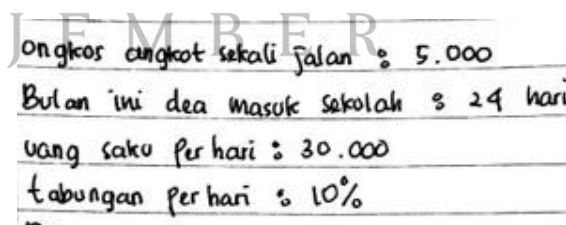 J E M B E R
ongkos angkot sekali jalan : 5.000
Bulan ini dea masuk sekolah : 24 hari
uang saku per hari : 30.000
tabungan per hari : 10%